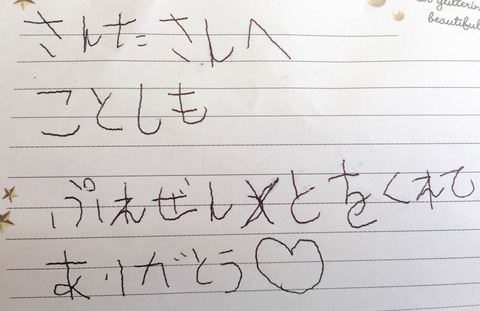 glitterin
beautiful
さんたさんへ
ことしも
ぷれぜんとをくれて
ありがとう♡